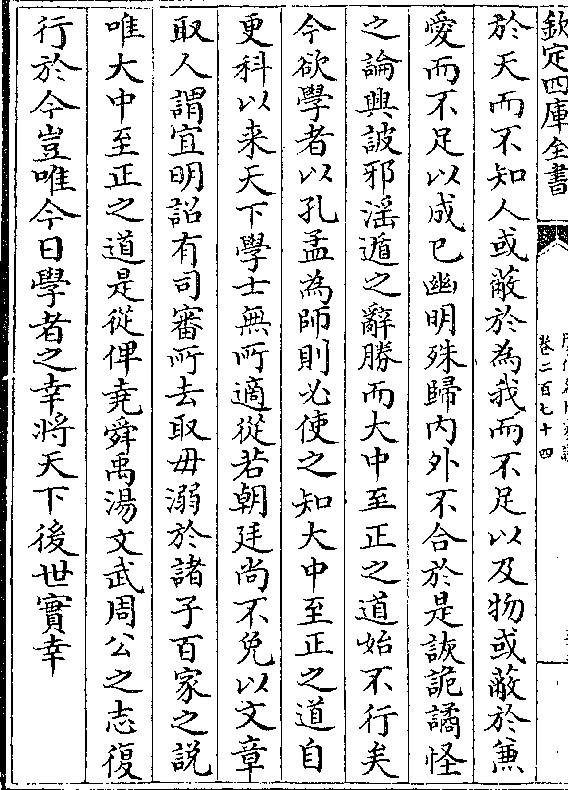 欽定四庫全書
卷二百七十四
於天而不知人或蔽於為我而不足以及物或蔽於兼
愛而不足以成已幽明殊歸内外不合於是詼詭譎怪
之論興詖邪淫遁之辭勝而大中至正之道始不行矣
今欲學者以孔孟為師則必使之知大中至正之道自
更科以来天下學士無所適從若朝廷尚不免以文章
取人謂宜明詔有司審所去取毋溺於諸子百家之説
唯大中至正之道是從俾堯舜禹湯文武周公之志復
行於今豈唯今日學者之幸將天下後世實幸